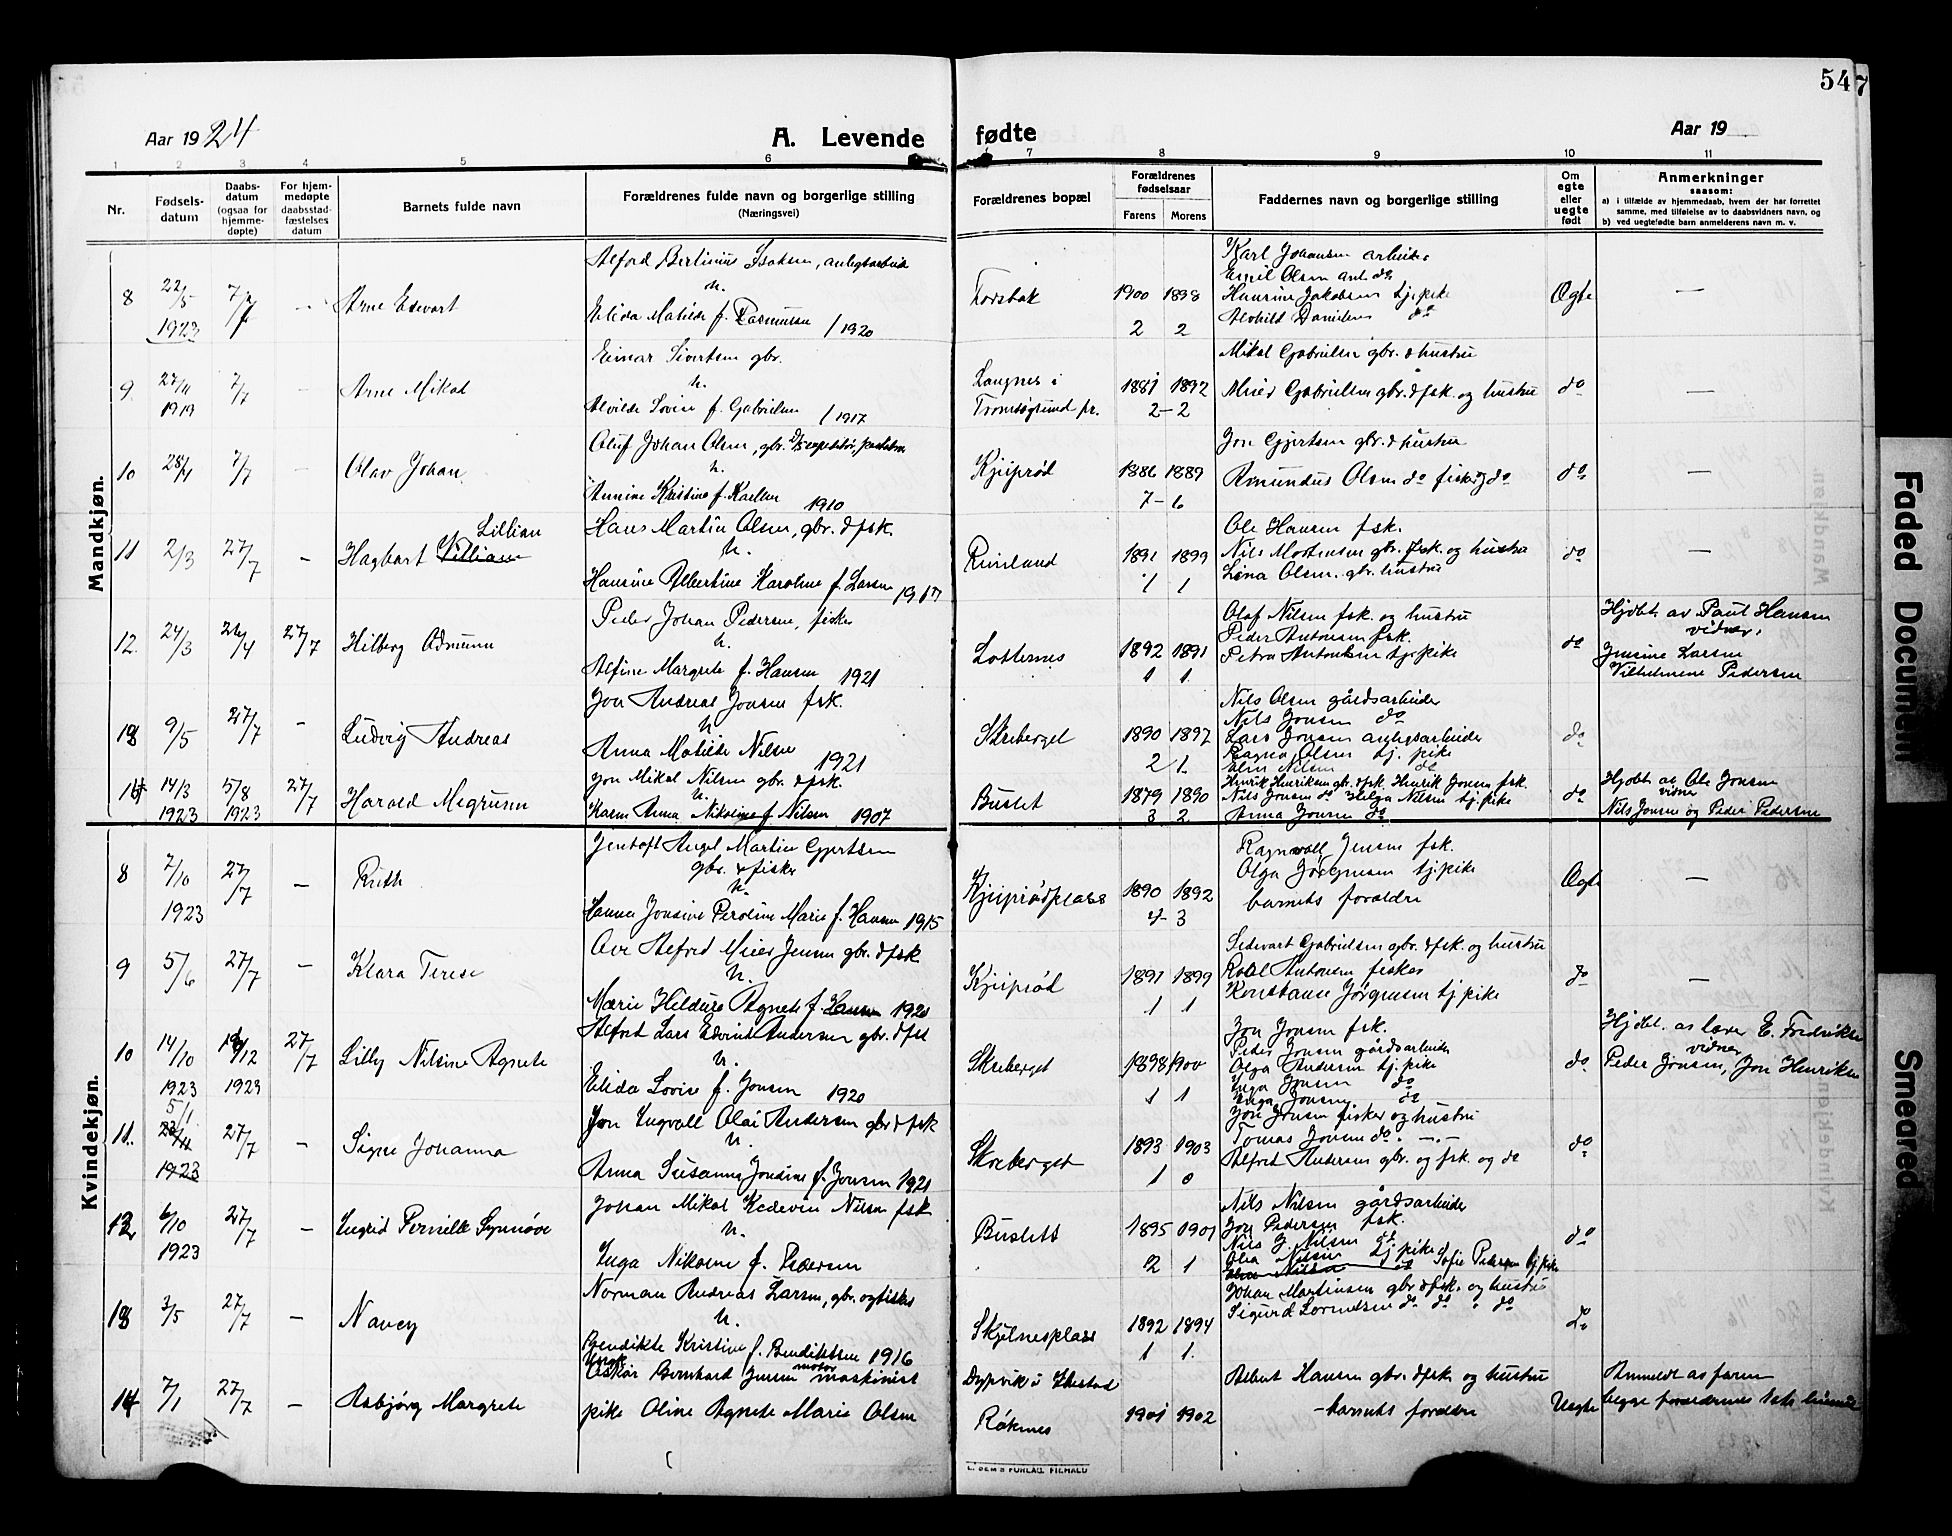 54
7
Aar 1924
A. Levende fødte
Aar 19
1 2 3 4 5 6 7 8 9 10 11
Nr.
Fødsels-
datum
Daabs-
datum
(ogsaa for
hjemme-
døpte)
For hjem-
medøpte
daabsstad-
fæstelses
datum
Barnets fulde navn
Forældrenes fulde navn og borgerlige stilling
(Næringsvei)
Forældrenes bopæl
Forældrenes
fødselsaar
Farens Morens
Faddernes navn og borgerlige stilling
Om
egte
eller
uegte
født
Anmerkninger
saasom:
a) i tilfælde av hjemmedaab, hvem der har forrettet
samme, med tilføielse av to daabsvidners navn, og
b) ved uegtefødte barn anmelderens navn m. v.
Mandkjøn.
8 22/5 1923 7/7 – Arne Edvart
Alfred Berlinius Isaksen, anlegsarbeider
Elida Matilde f. Rasmussen / 1920
1900 1898
2 2
Karl Johansen arbeider
Emil Olsen anl. do
Haurine Jakobsen tj. pike
Alvhild Danielsen do
Ægte –
9 27/11 1919 7/7 – Arne Mikal
Einar Sivertsen gbr.
Alvilde Lovise f. Gabrielsen / 1917
Langnes i
Tromsøysund pr.
1881 1892
2 – 2
Mikal Gabrielsen gbr. & hustru
Meier Gabrielsen gbr. & fsk. og hustru
do –
10 28/4 7/7 – Olav Johan
Oluf Johan Olsen, gbr.
Annine Kristine f. Karlsen 1910
Kjeiprød
1886 1889
7 – 6
Jon Gjertsen gbr. & hustru
Amundus Olsen do fisker & do
do –
11 2/3 27/7 – Hagbart Lillian
Hans Martin Olsen, gbr. & fsk.
Hansine Albertine Karoline f. Larsen 1917
1891 1899
1 1
Ole Hansen fsk.
Nils Mortensen gbr. fsk. og hustru
Lina Olsen. gbr. hustru
do –
12. 24/3 27/7 Hilberg Odmunn
Peder Johan Pedersen, fisker
Alfine Margrete f. Hansen 1921
Lotternes
1892 1891
1 1
Olaf Nilsen fsk. og hustru
Peder Antonsen fsk.
Petra Antonsen tj. pike
do
Hjdbt. av Paul Hansen
vidner:
Jensine Larsen
Vilhelmine Pedersen
13 9/5 27/7 – Ludvig Andreas
Jon Andreas Jonsen fsk.
Anna Matilde Nilsen 1921
Skreberget
1890 1897
2 1.
Nils Olsen gårdsarbeider
Nils Jonsen do
Lars Jonsen anlegsarbeider
Ragna Olsen tj. pike
Elen Nilsen do
do
14 14/3 1923 5/8 1923 27/7 Harald Megrunn
Jon Mikal Nilsen gbr. & fsk.
Karen Anna Nikoline f. Nilsen 1907
Buslet
1879 1890
3 2
Henrik Henriksen gbr. & fsk. Henrik Jonsen fsk.
Nils Jonsen do Helga Nilsen tj. pike
Anna Jonsen do
do
Hjdbt. av Ole Jonsen
vidner
Nils Jonsen og Peder Pedersen
Kvindekjøn.
8 7/10 1923 27/7 – Ruth
Jentoft Angel Martin Gjertsen
gbr. & fisker
Hanna Jonsine Peroline Marie f. Hansen 1915
Kjeiprødplass
1890 1892
4 – 3
Ragnvall Jensen fsk.
Olga Jørgensen tj. pike
barnets foreldre
Ægte –
9 5/6 27/7 – Klara Terese
Ove Alfred Meier Jensen gbr. & fsk.
Marie Hildure Agnete f. Hansen 1921
Kjeiprød
1891 1899
1 1
Sedevart Gabrielsen gbr. & fsk. og hustru
Roal Antonsen fisker
Konstanse Jørgensen tj. pike
do –
10 14/10 1923 12 1923 27/7 Lilly Nilsine Agnete
Alfred Lars Edvind Andersen gbr. & fsk
Elida Lovise f. Jonsen 1920
Skreberget
1898 1900
1 1
Jon Jonsen fsk.
Peder Jonsen gårdsarbeider
Olga Andersen tj. pike
Inga Jensen do
Inga Jonsen do
do
Hjdbt. av lærer E. Fredriksen
vidner
Peder Jonsen, Jon Henriksen
11. 5/1 1923 27/7 – Signe Johanna
Jon Ingvall Olai Andersen gbr & fsk
Anna Susanna Jonsine f. Jonsen 1921
Skreberget
1893 1903
1 0
Jon Jonsen fisker og hustru
Tomas Jonsen do. –.–
Alfred Andersen gbr. og fsk. og do
do
12 6/10 1923 27/7 – Ingrid Pernille Synnøve
Johan Mikal Kedevin Nilsen fsk
Inga Nikoline f. Pedersen
Buslett
1895 1901
2 1
Nils Nilsen gårdsarbeider
Jon Pedersen fsk.
Nils J. Nilsen do.
Olea Nilsen tj. pike
Sofie Pedersen tj. pike
do
13 3/5 27/7 – Nancy
Norman Andreas Larsen, gbr. og fisker
Bendikte Kristine f. Bendiktsen 1916
Skjelnesplass
1892 1894
1 1.
Johan Martinsen gbr. & fsk. og hustru
Sigurd Lorentsen do do " do
do
14 7/1 27/7 – Asbjørg Margrete
Ungk. Oskar Bernhard Jensen motormaskinist
pike Oline Agnete Marie Olsen
Dypvik i Ibestad
Røknes
1901 1902
Albert Hansen gbr. & fsk. og hustru
– barnets foreldre
Uegte
Anmeldt av faren
begge foreldrenes 1ste barn
Faded Document
Smeared